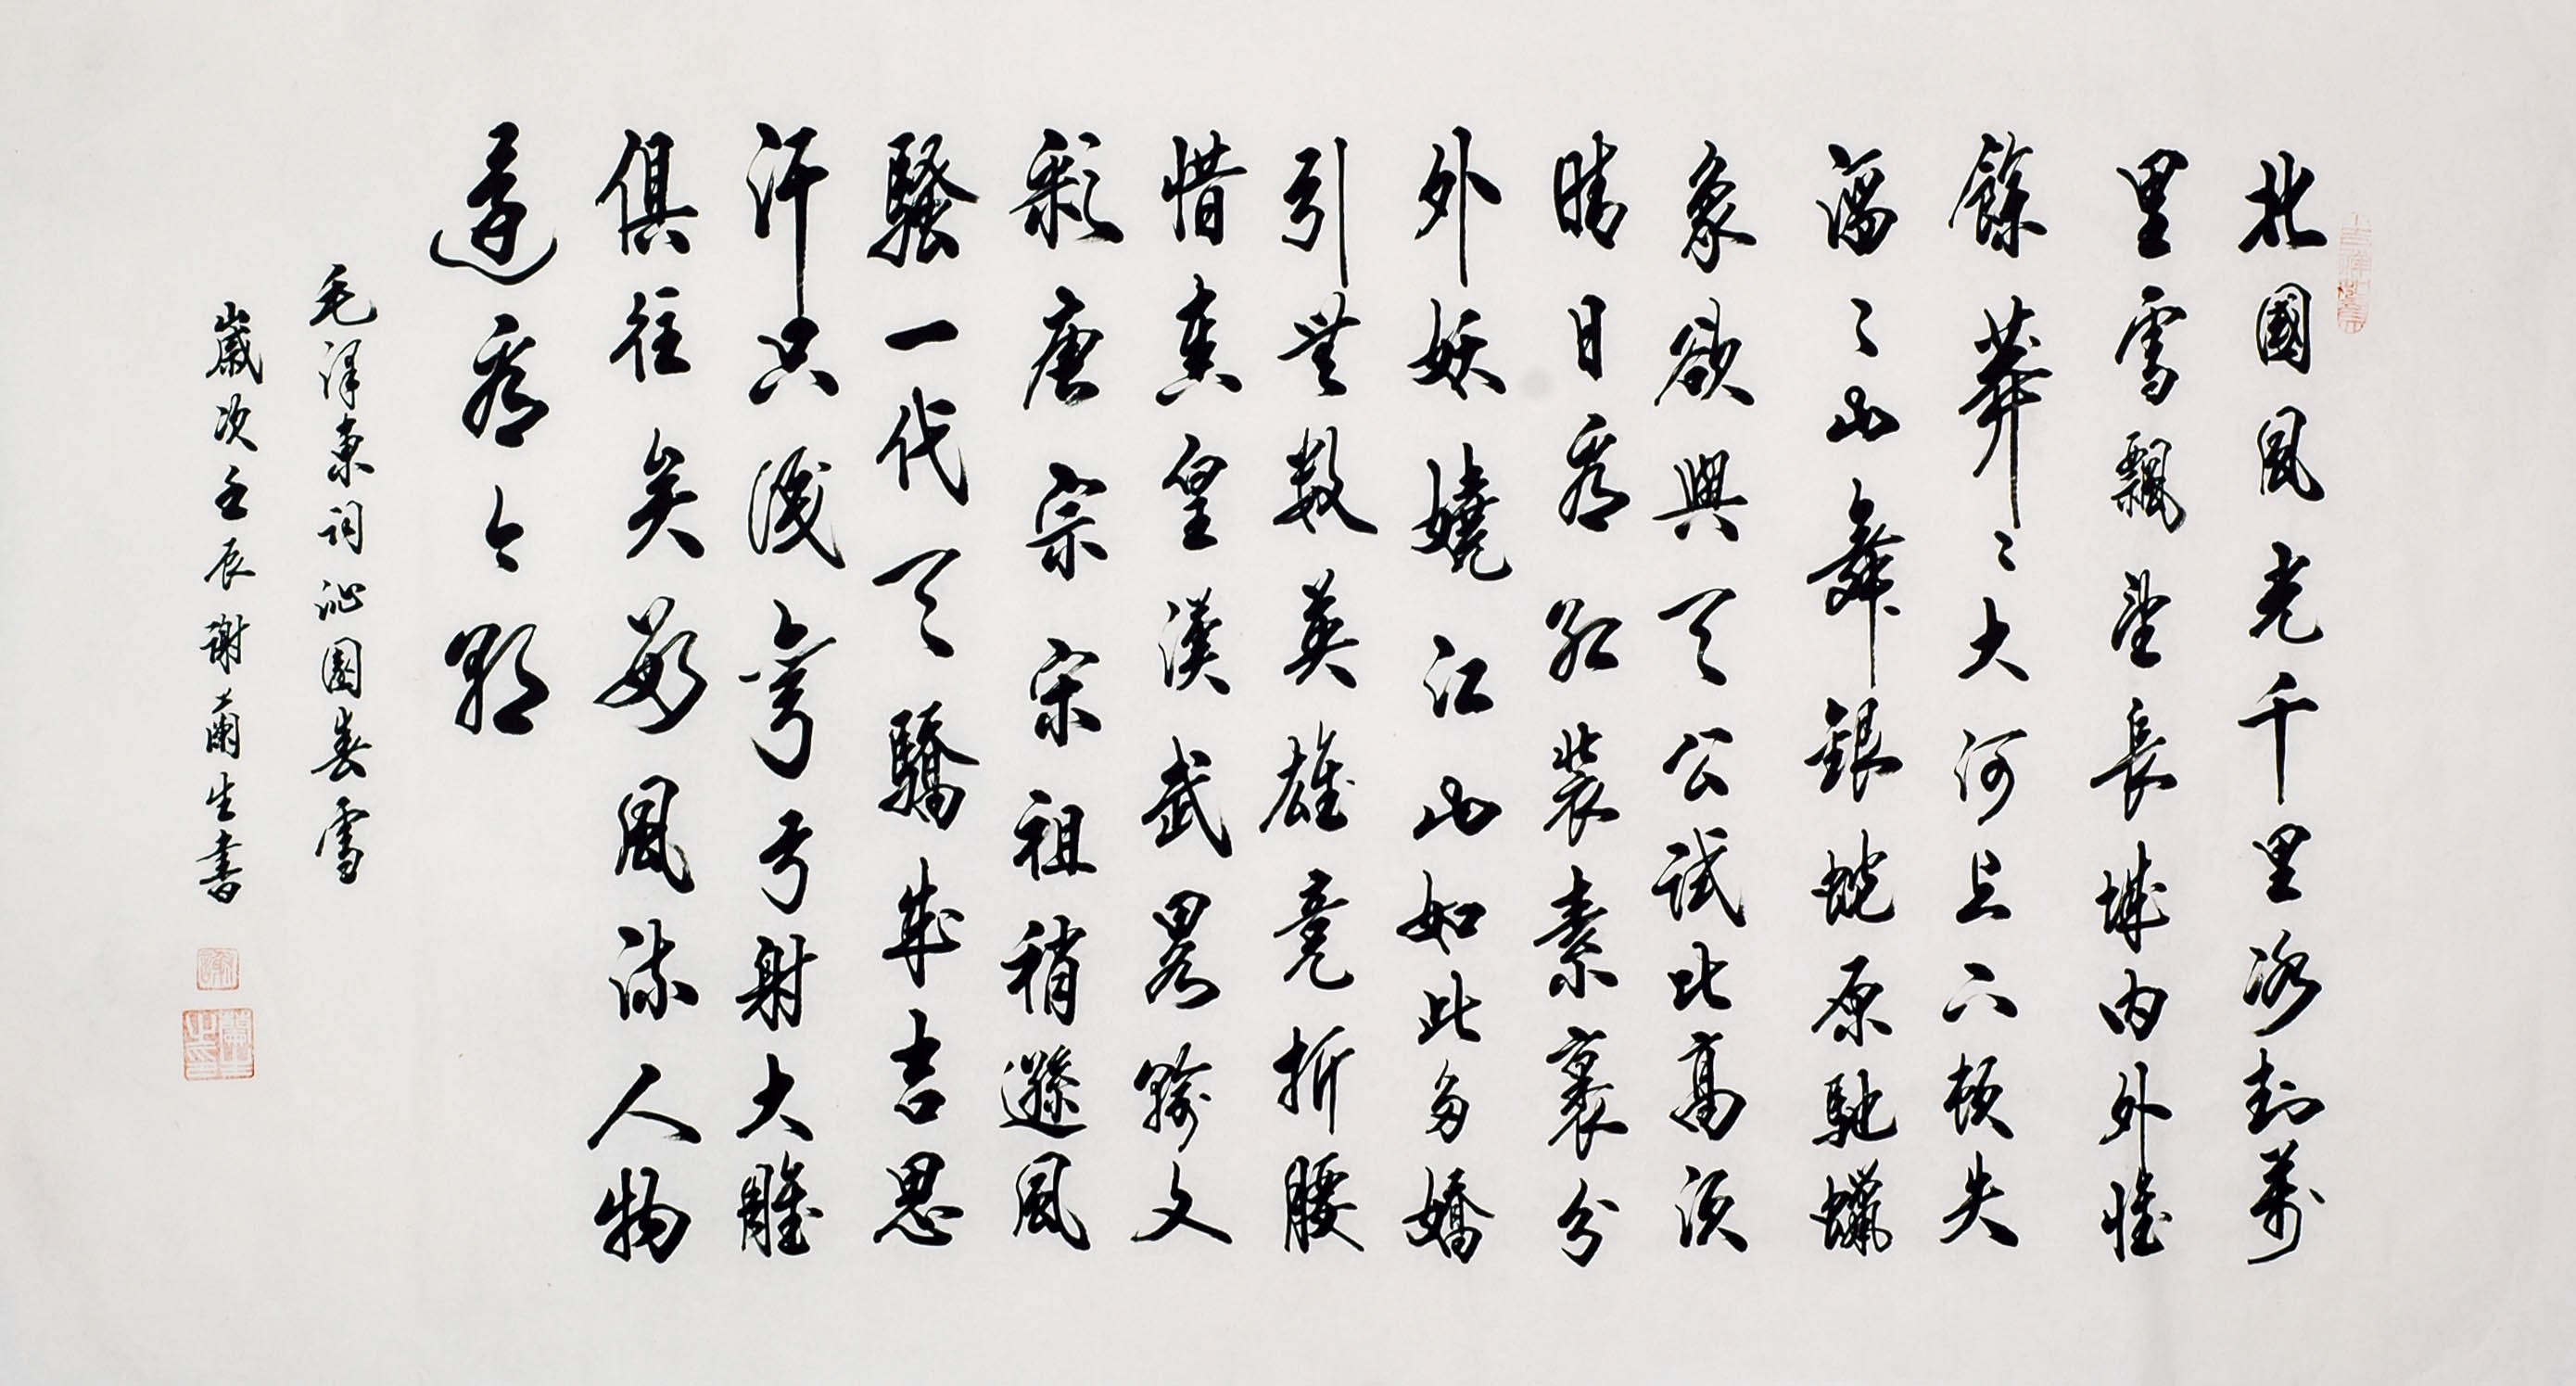 北國風光千里冰封萬
里雪飄望長城內外惟
餘莽〻大河上下頓失
滔〻山舞銀蛇原馳蠟
象欲與天公試比高須
晴日看紅裝素裹分
外妖嬈江山如此多嬌
引無數英雄競折腰
惜秦皇漢武略輸文
彩唐宗宋祖稍遜風
騷一代天驕成吉思
汗只識彎弓射大雕
俱往矣數風流人物
還看今朝
毛澤東詞沁園春雪
歲次壬辰謝蘭生書
謝
蘭生之印